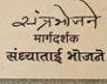 संत्रभोजने
मार्गदर्शक
संध्याताई भोजने